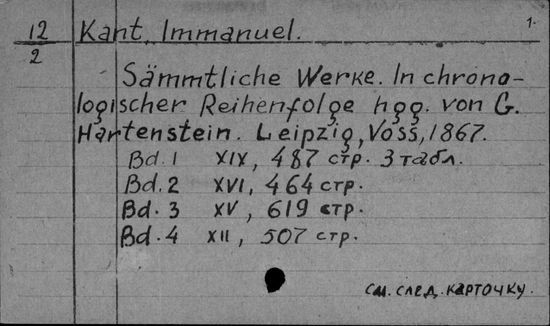 12 Kant, Immanuel. 1.
2
Sämmtliche Werke. In chrono-
logischer Reihenfolge hgg. von G.
Hartenstein. Leipzig, Voss, 1867.
Bd. 1 XIX, 487 стр. 3 табл.
Bd. 2 XVI, 464 стр.
Bd. 3 XV, 619 стр.
Bd. 4 XII, 507 стр.
см. след. карточку.